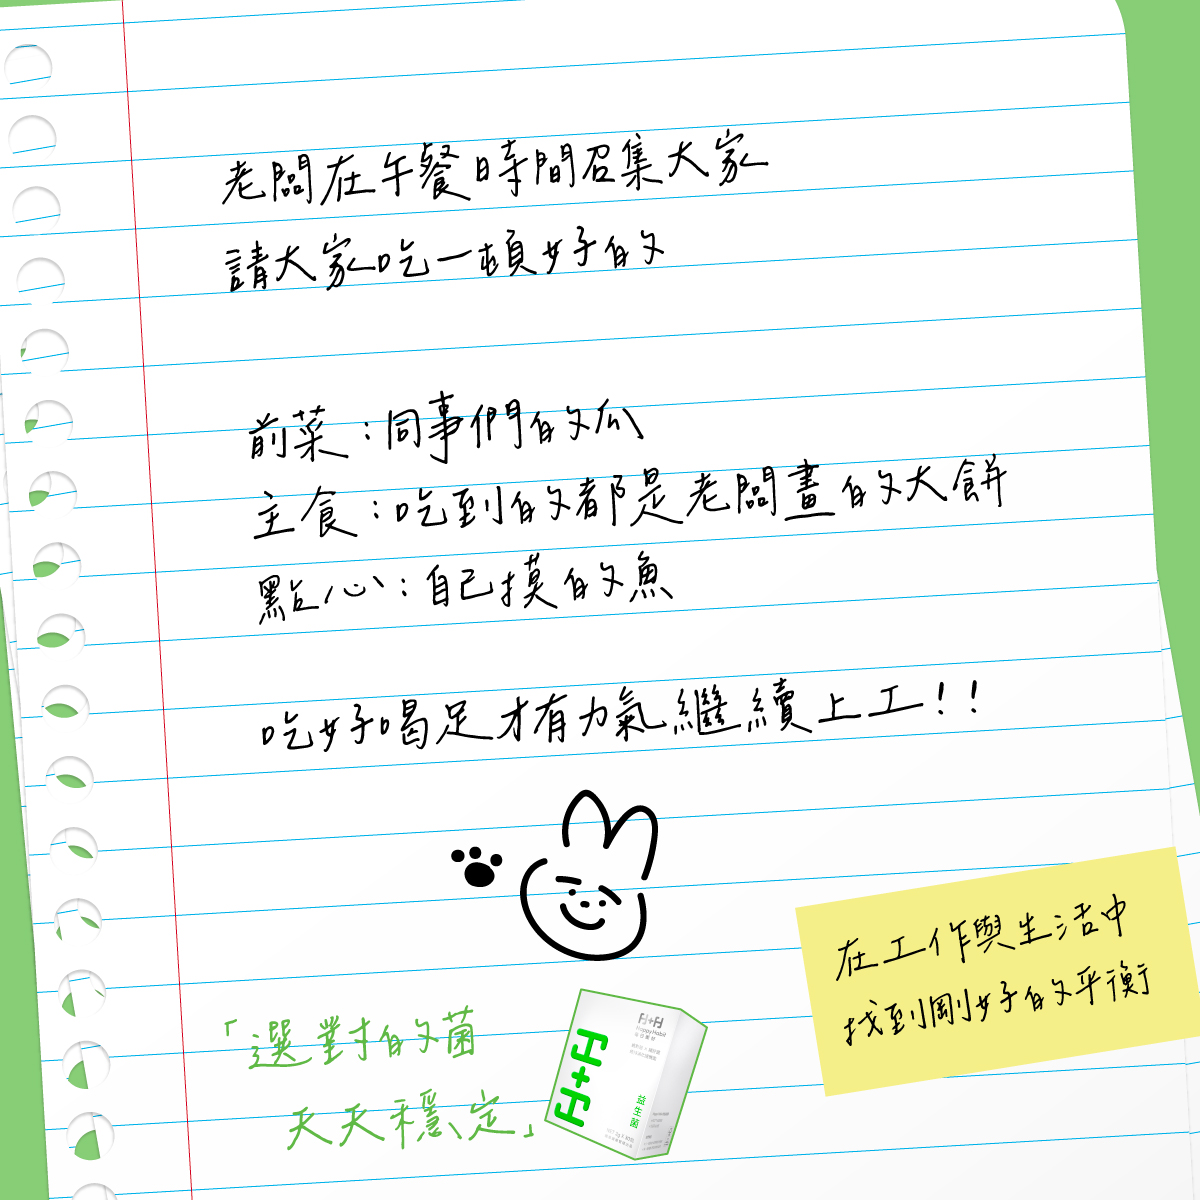 老闆在午餐時間召集大家
請大家吃一頓好的
前菜：同事們的瓜
主食：吃到的都是老闆畫的大餅
點心：自己摸的魚
吃好喝足才有力氣繼續上工！！
在工作與生活中
找到剛好的平衡
「選對的菌
天天穩定」
H+H
H+H
HappyHabit
益生菌